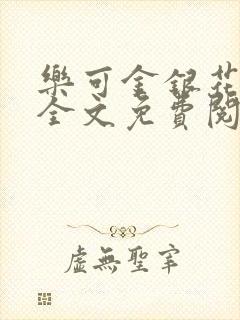 樂可金銀花
全文免費閱
虛無聖宰